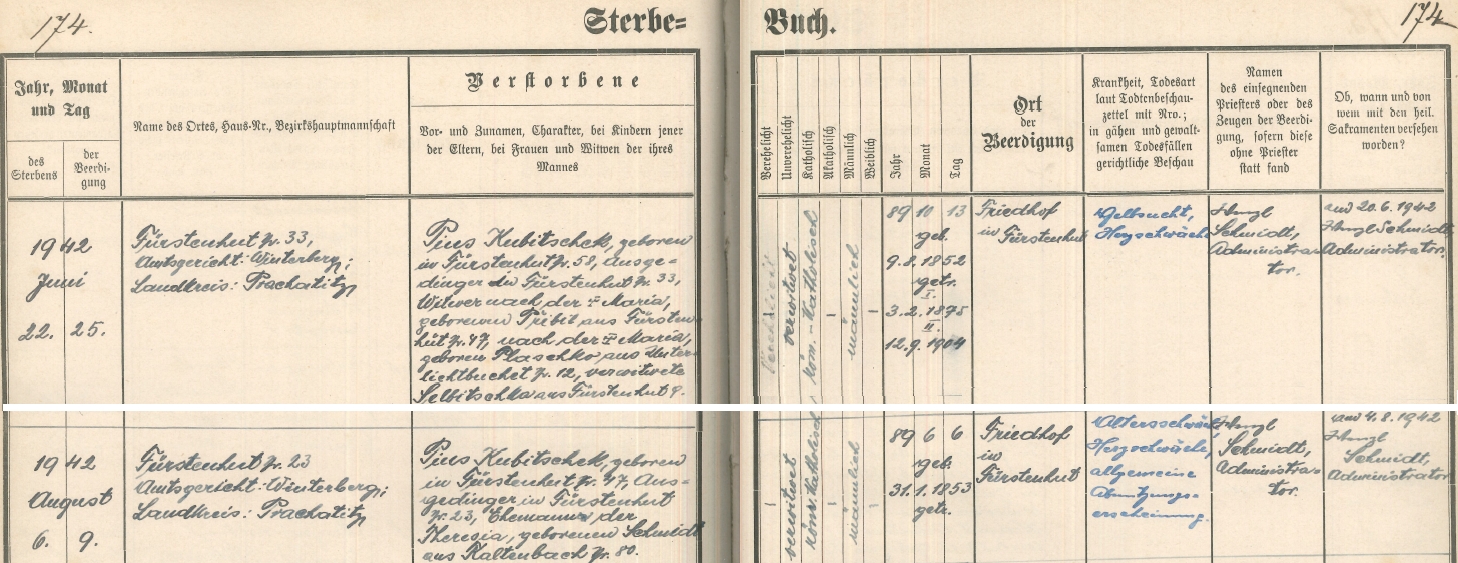 174.
Sterbe-
Buch.
174
Jahr, Monat
und Tag
des
Sterbens
der
Beerdi-
gung
Name des Ortes, Haus-Nr., Bezirkshauptmannschaft
Verstorbene
Vor- und Zunamen, Charakter, bei Kindern jener
der Eltern, bei Frauen und Witwen der ihres
Mannes
Verehelicht
Unverehelicht
Katholisch
Akatholisch
Männlich
Weiblich
Jahr
Monat
Tag
Ort
der
Beerdigung
Krankheit, Todesart
laut Todtenbeschau-
zettel mit Nro.;
in gähen und gewalt-
samen Todesfällen
gerichtliche Beschau
Namen
des einsegnenden
Priesters oder des
Zeugen der Beerdi-
gung, sofern diese
ohne Priester
statt fand
Ob, wann und von
wem mit den heil.
Sakramenten versehen
worden?
1942
Juni
22. 25.
Fürstenhut Nr. 33,
Amtsgericht: Winterberg;
Landkreis: Prachatitz
Pius Kubitschek, geboren
in Fürstenhut Nr. 58, Ausge-
dinger in Fürstenhut Nr. 33,
Witwer nach der I Maria,
geborenen Pribil aus Fürsten-
hut Nr. 47, nach der II Maria,
geboren Plaschko aus Unter-
lichtbuchet Nr. 12, verwitwete
Selbitschka aus Fürstenhut 9.
verwitwet
röm.-katholisch
-
männlich
-
89 10 13
geb.
9.8.1852
getr.
I.
3.2.1875
II.
12.9.1904
Friedhof
in Fürstenhut
Gelbsucht,
Herzschwäche
Schmidt,
Administra-
tor.
am 20.6.1942
Schmidt,
Administrator.
1942
August
6. 9.
Fürstenhut Nr. 23
Amtsgericht: Winterberg;
Landkreis: Prachatitz
Pius Kubitschek, geboren
in Fürstenhut Nr. 47, Aus-
gedinger in Fürstenhut
Nr. 23, Ehemann der
Theresia, geborenen Schmidt
aus Kaltenbach Nr. 80.
-
verwitwet
römisch-katholisch
-
männlich
-
89 6 6
geb.
31.1.1853
getr.
Friedhof
in
Fürstenhut
Altersschwäche,
Herzschwäche,
allgemeine
Abnützungs-
erscheinung.
Schmidt,
Administra-
tor.
am 4.8.1942
Schmidt,
Administrator